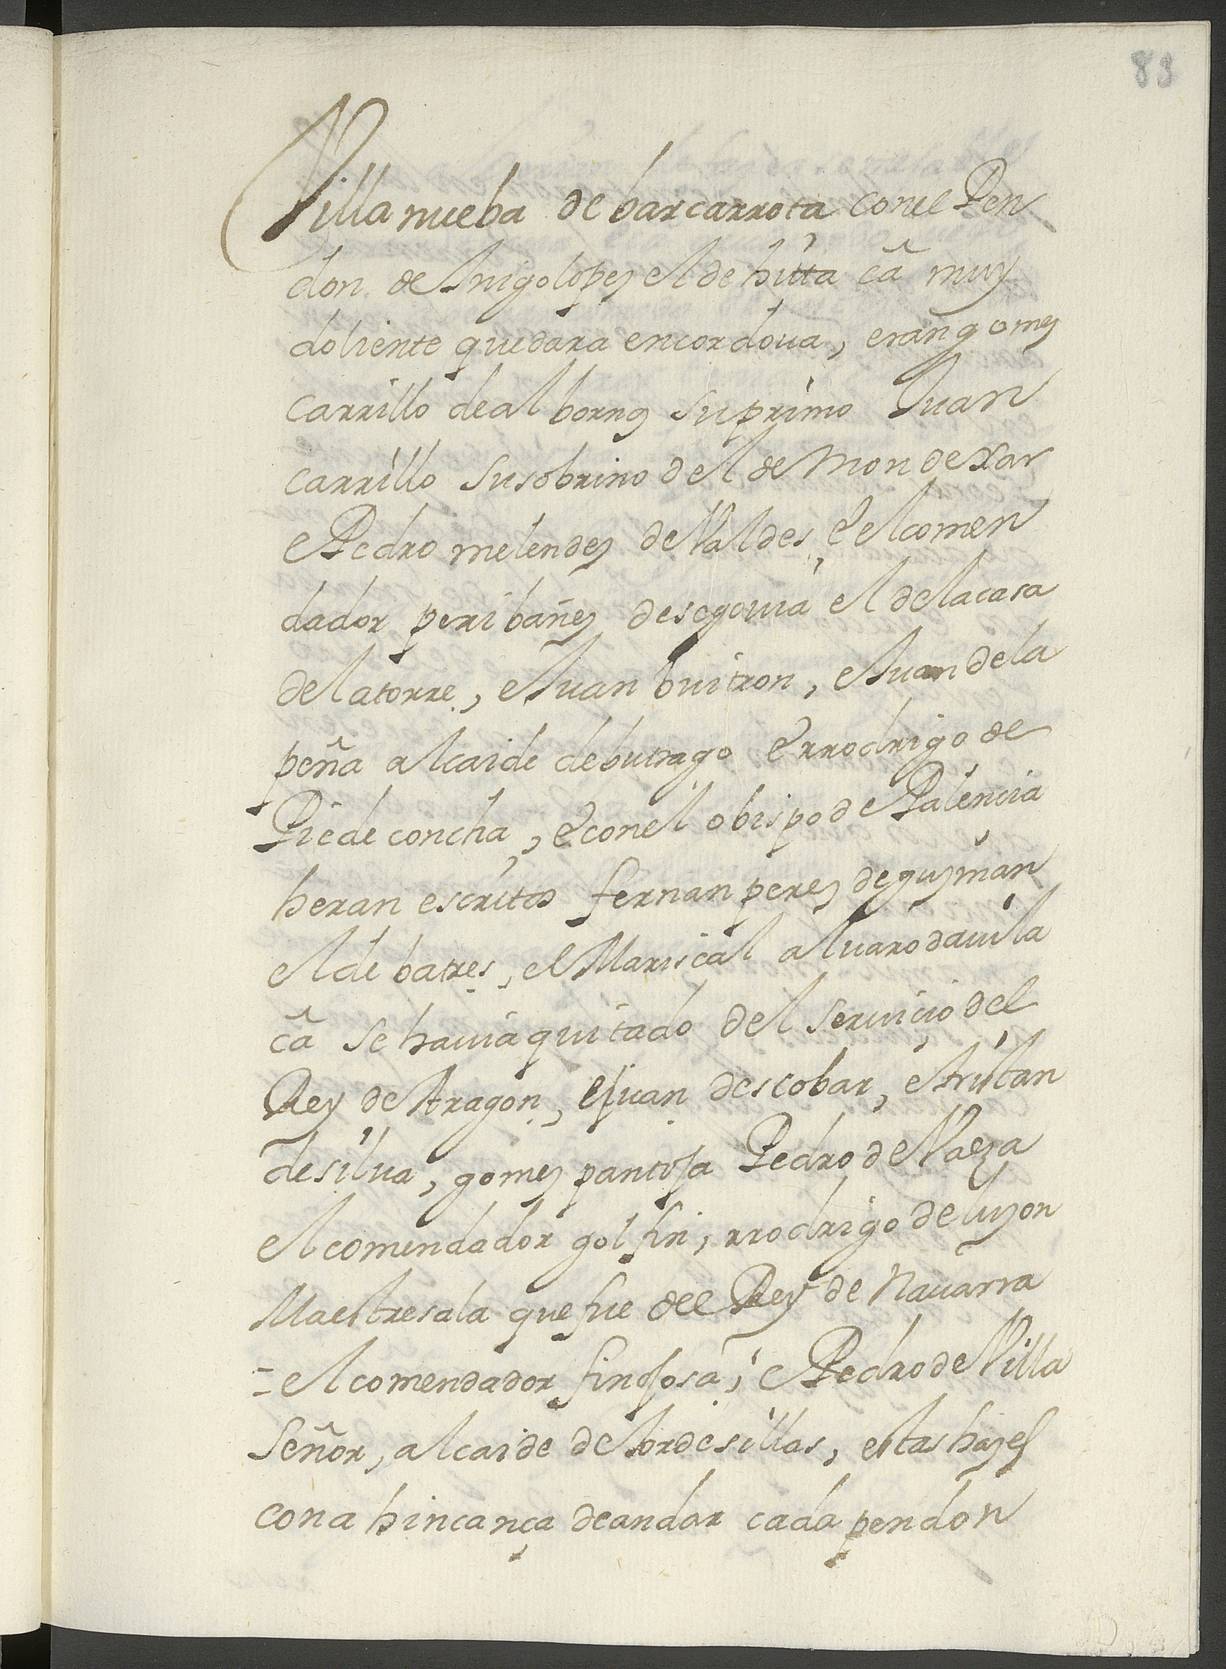 83
Villa nueba de barcarrota con el Pen
don de Inigo lopez el de hitta cã muy
doliente quedara en cordoua, eran gomez
carrillo de al bornoz su primo Iuan
carrillo su sobrino del de Mondexar
e Pedro melendez de Valdes, e el comen
dador peribañez de segouia el de la casa
de la torre, e Iuan buitron, e Iuan de la
peña alcaide de butrago e rrodrigo de
Pie de concha, e con el obispo de Palencia
heran escritos fernan perez de guzman
el de batres, el Mariscal aluaro dauila
cã se hauia quitado del seruicio del
Rey de Aragon, e juan descobar, e tristan
de silua, gomez pantoja Pedro de Vaeza
el comendador golfin, rrodrigo de luzon
Maestresala que fue del Rey de Nauarra
= el comendador finojosa, e Pedro de Villa
Señor, alcaide de tordesillas, estas hazes
con a hincança de andar cada pendon